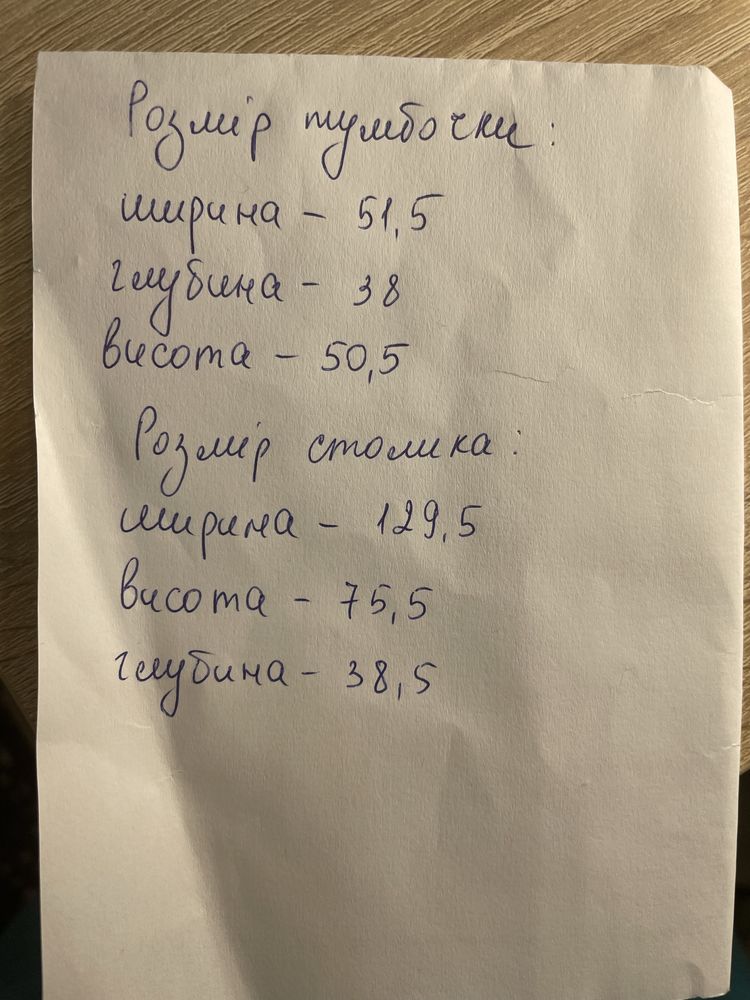 Розмір тумбочки:
ширина - 51,5
глубина - 38
висота - 50,5
Розмір столика:
ширина - 129,5
висота - 75,5
глубина - 38,5